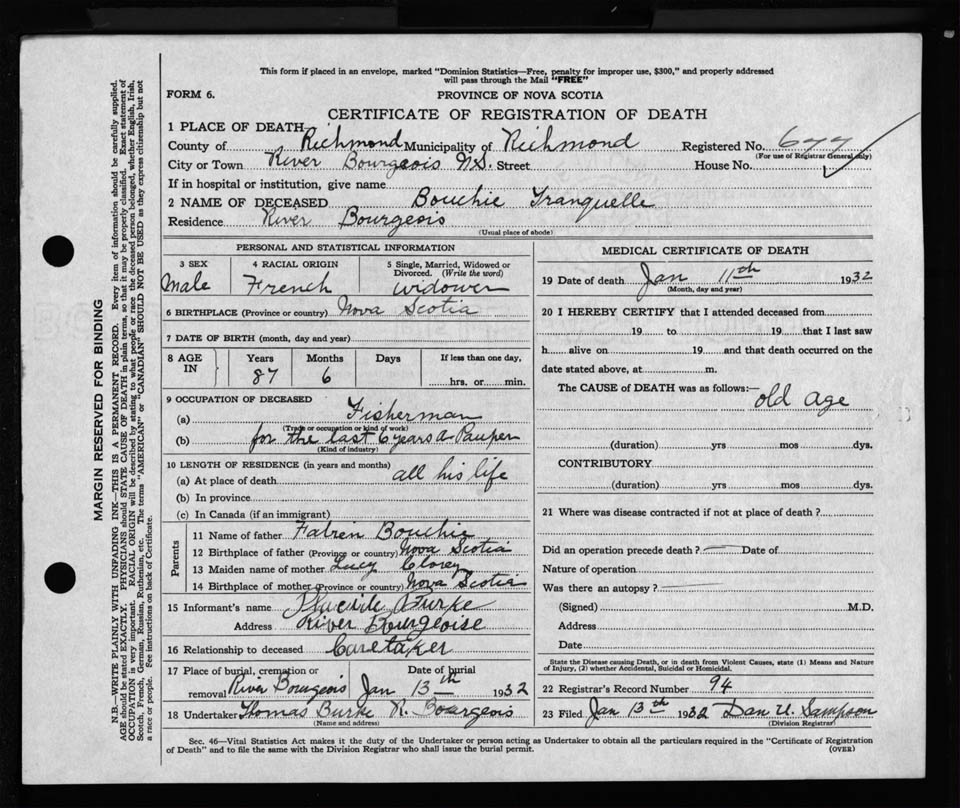 This form if placed in an envelope, marked "Dominion Statistics—Free, penalty for improper use, $300," and properly addressed
will pass through the Mail "FREE"
FORM 6.
PROVINCE OF NOVA SCOTIA
CERTIFICATE OF REGISTRATION OF DEATH
1 PLACE OF DEATH
County of Richmond Municipality of Richmond Registered No. 677
(For use of Registrar General only)
City or Town River Bourgeois N.S. Street House No.
If in hospital or institution, give name
2 NAME OF DECEASED Bouchie Tranquelle
Residence River Bourgeois
(Usual place of abode)
PERSONAL AND STATISTICAL INFORMATION
3 SEX
Male
4 RACIAL ORIGIN
French
5 Single, Married, Widowed or
Divorced. (Write the word)
widower
6 BIRTHPLACE (Province or country) Nova Scotia
7 DATE OF BIRTH (month, day and year)
8 AGE
IN
Years Months Days If less than one day,
87 6 hrs. or min.
9 OCCUPATION OF DECEASED
(a) Fisherman
(Trade or occupation or kind of work)
(b) for the last 6 years a Pauper
(Kind of industry)
10 LENGTH OF RESIDENCE (in years and months)
(a) At place of death all his life
(b) In province
(c) In Canada (if an immigrant)
Parents
11 Name of father Fabien Bouchie
12 Birthplace of father (Province or country) Nova Scotia
13 Maiden name of mother Lucy
14 Birthplace of mother (Province or country) Nova Scotia
15 Informant's name Burke
Address River Bourgeoise
16 Relationship to deceased Caretaker
17 Place of burial, cremation or Date of burial
removal River Bourgeois Jan 13th 1932
18 Undertaker Thomas Burke R. Bourgeois
(Name and address)
MEDICAL CERTIFICATE OF DEATH
19 Date of death Jan 11th 1932
(Month, day and year)
20 I HEREBY CERTIFY that I attended deceased from
19 to 19 that I last saw
h alive on 19 and that death occurred on the
date stated above, at m.
The CAUSE of DEATH was as follows:—
old age
(duration) yrs mos dys.
CONTRIBUTORY
(duration) yrs mos dys.
21 Where was disease contracted if not at place of death?
Did an operation precede death? — Date of
Nature of operation
Was there an autopsy? —
(Signed) M.D.
Address
Date
State the Disease causing Death, or in death from Violent Causes, state (1) Means and Nature
of Injury, (2) whether Accidental, Suicidal or Homicidal.
22 Registrar's Record Number 94
23 Filed Jan 13th 1932 Dan U. Sampson
(Division Registrar)
Sec. 46—Vital Statistics Act makes it the duty of the Undertaker or person acting as Undertaker to obtain all the particulars required in the "Certificate of Registration
of Death" and to file the same with the Division Registrar who shall issue the burial permit.
(OVER)
MARGIN RESERVED FOR BINDING
N.B.—WRITE PLAINLY WITH UNFADING INK—THIS IS A PERMANENT RECORD. Every item of information should be carefully supplied.
AGE should be stated EXACTLY. PHYSICIANS should STATE CAUSE OF DEATH in plain terms, so that it may be properly classified. Exact statement of
OCCUPATION is very important. RACIAL ORIGIN will be described by stating to what people or race the deceased person belonged, whether English, Irish,
Scotch, French, German, Russian, Ruthenian, etc. The terms "AMERICAN" or "CANADIAN" SHOULD NOT BE USED as they express citizenship but not
a race or people. See instructions on back of Certificate.